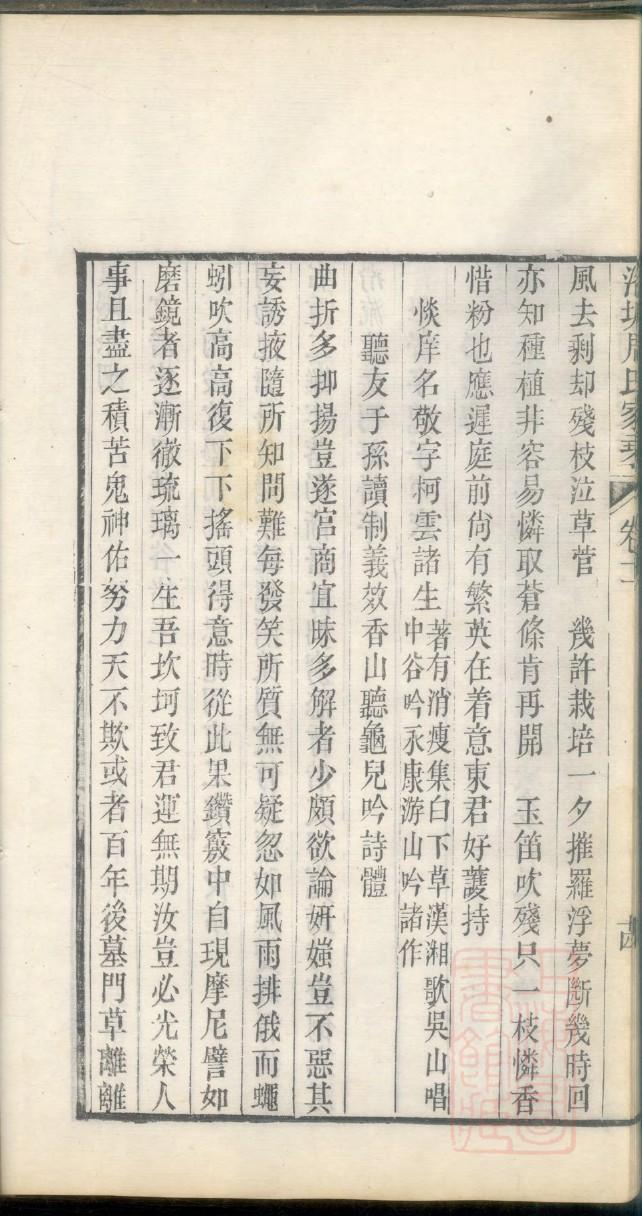 周氏家琴 卷二
風去剩却殘枝泣草菅 幾許栽培一夕摧羅浮夢斷幾時回
亦知種植非容易憐取蒼條肯再開 玉笛吹殘只一枝憐香
惜粉也應遲庭前尙有繁英在着意東君好護持
惔庠名敬字柯雲諸生著有消瘦集白下草漢湘歌吳山唱
中谷吟永康游山吟諸作
聽友于孫讀制義效香山聽龜兒吟詩體
曲折多抑揚豈遂宮商宜昧多解者少頗欲論妍媸豈不惡其
妄誘掖隨所知問難每發笑所質無可疑忽如風雨排俄而蠅
蚓吹高高復下下搖頭得意時從此果鑽竅中自現摩尼譬如
磨鏡者逐漸徹琉璃一生吾坎坷致君運無期汝豈必光榮人
事且盡之積苦鬼神佑努力天不欺或者百年後墓門草離離